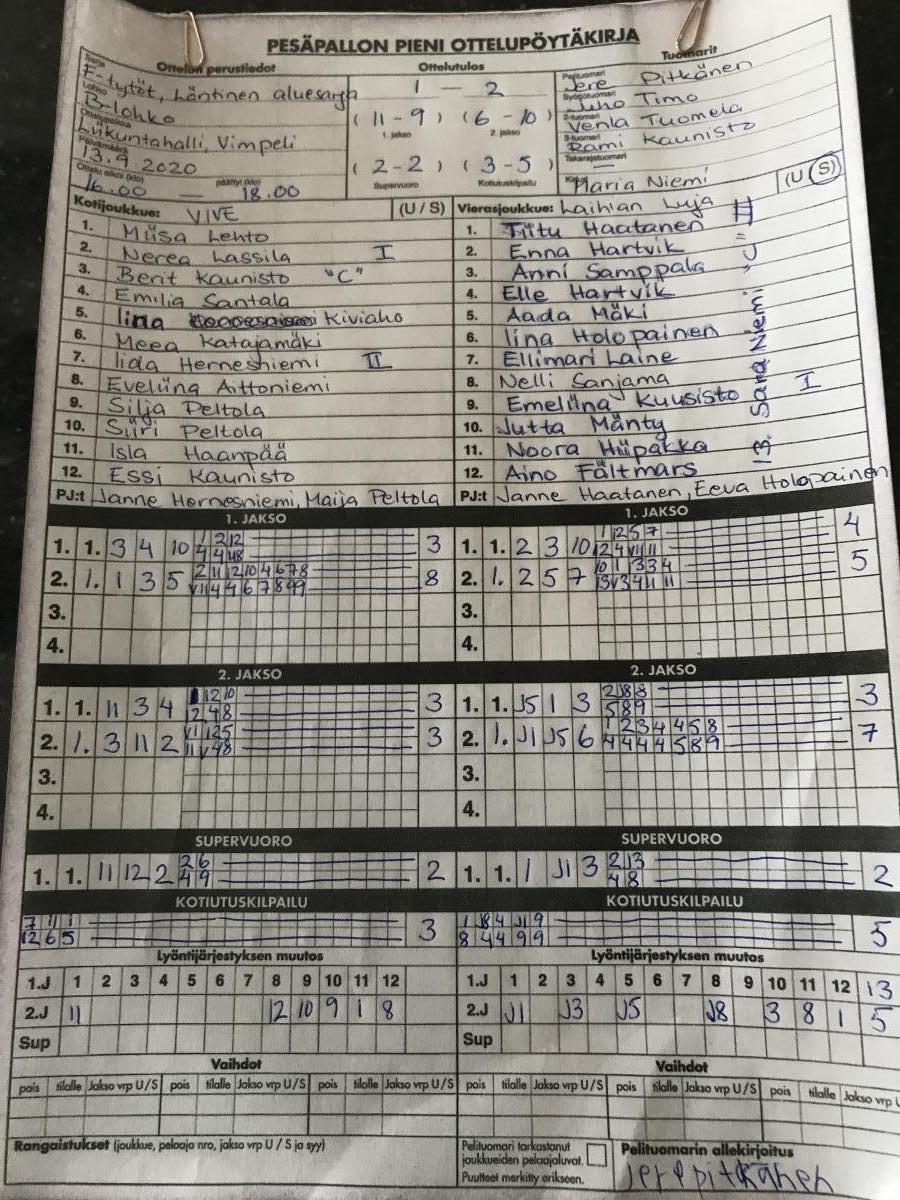 PESÄPALLON PIENI OTTELUPÖYTÄKIRJA
Ottelun perustiedot
Ottelutulos
Tuomarit
Sarja
F-tytöt, Läntinen aluesarja
Lohko
B-lohko
Ottelupaikka
Liikuntahalli, Vimpeli
Päivämäärä
13.9.2020
Ottelu alkoi (klo)
16.00 — päättyi (klo) 18.00
1 — 2
(11 - 9) (6 - 10)
1. jakso 2. jakso
(2 - 2) (3 - 5)
Supervuoro Kotiutuskilpailu
Pelituomari
Jere Pitkänen
Syöttötuomari
Juho Timo
2-tuomari
Venla Tuomela
3-tuomari
Rami Kaunisto
Takarajatuomari
—
Kirjuri
Maria Niemi
Kotijoukkue: VIVE (U / S)
1. Miisa Lehto
2. Nerea Lassila I
3. Berit Kaunisto "C"
4. Emilia Santala
5. Iina Kiviaho
6. Meea Katajamäki
7. Iida Herneshiemi II
8. Eveliina Aittoniemi
9. Silja Peltola
10. Siiri Peltola
11. Isla Haanpää
12. Essi Kaunisto
PJ:t Janne Hernesniemi, Maija Peltola
Vierasjoukkue: Laihian Luja (U / S)
1. Tiitu Haatanen
2. Enna Hartvik
3. Anni Samppala
4. Elle Hartvik
5. Aada Mäki
6. Iina Holopainen
7. Ellimari Laine
8. Nelli Sanjama
9. Emeliina Kuusisto I
10. Jutta Mänty
11. Noora Hiipakka
12. Aino Fältmars
13. Sara Niemi "C"
PJ:t Janne Haatanen, Eeva Holopainen
1. JAKSO
1. 1. 3 4 10 3
2. 1. 1 3 5 8
3.
4.
1. JAKSO
1. 1. 2 3 10 4
2. 1. 2 5 7 5
3.
4.
2. JAKSO
1. 1. 11 3 4 3
2. 1. 3 11 2 3
3.
4.
2. JAKSO
1. 1. J5 1 3 3
2. 1. J1 J5 6 7
3.
4.
SUPERVUORO
1. 1. 11 12 2 2 6 2
4 9
SUPERVUORO
1. 1. 1 J1 3 2 J3 2
4 8
KOTIUTUSKILPAILU
7 11 1 3
12 6 5
KOTIUTUSKILPAILU
1 J8 4 J1 9 5
8 4 4 9 9
Lyöntijärjestyksen muutos
1.J 1 2 3 4 5 6 7 8 9 10 11 12
2.J 11 12 10 9 1 8
Sup
Lyöntijärjestyksen muutos
1.J 1 2 3 4 5 6 7 8 9 10 11 12 13
2.J J1 J3 J5 J8 3 8 1 5
Sup
Vaihdot
pois tilalle Jakso vrp U/S pois tilalle Jakso vrp U/S pois tilalle Jakso vrp U/S
Vaihdot
pois tilalle Jakso vrp U/S pois tilalle Jakso vrp U/S pois tilalle Jakso vrp U
Rangaistukset (joukkue, pelaaja nro, jakso vrp U / S ja syy)
Pelituomari tarkastanut
joukkueiden pelaajaluvat.
Puutteet merkitty erikseen.
Pelituomarin allekirjoitus
Jere pitkänen